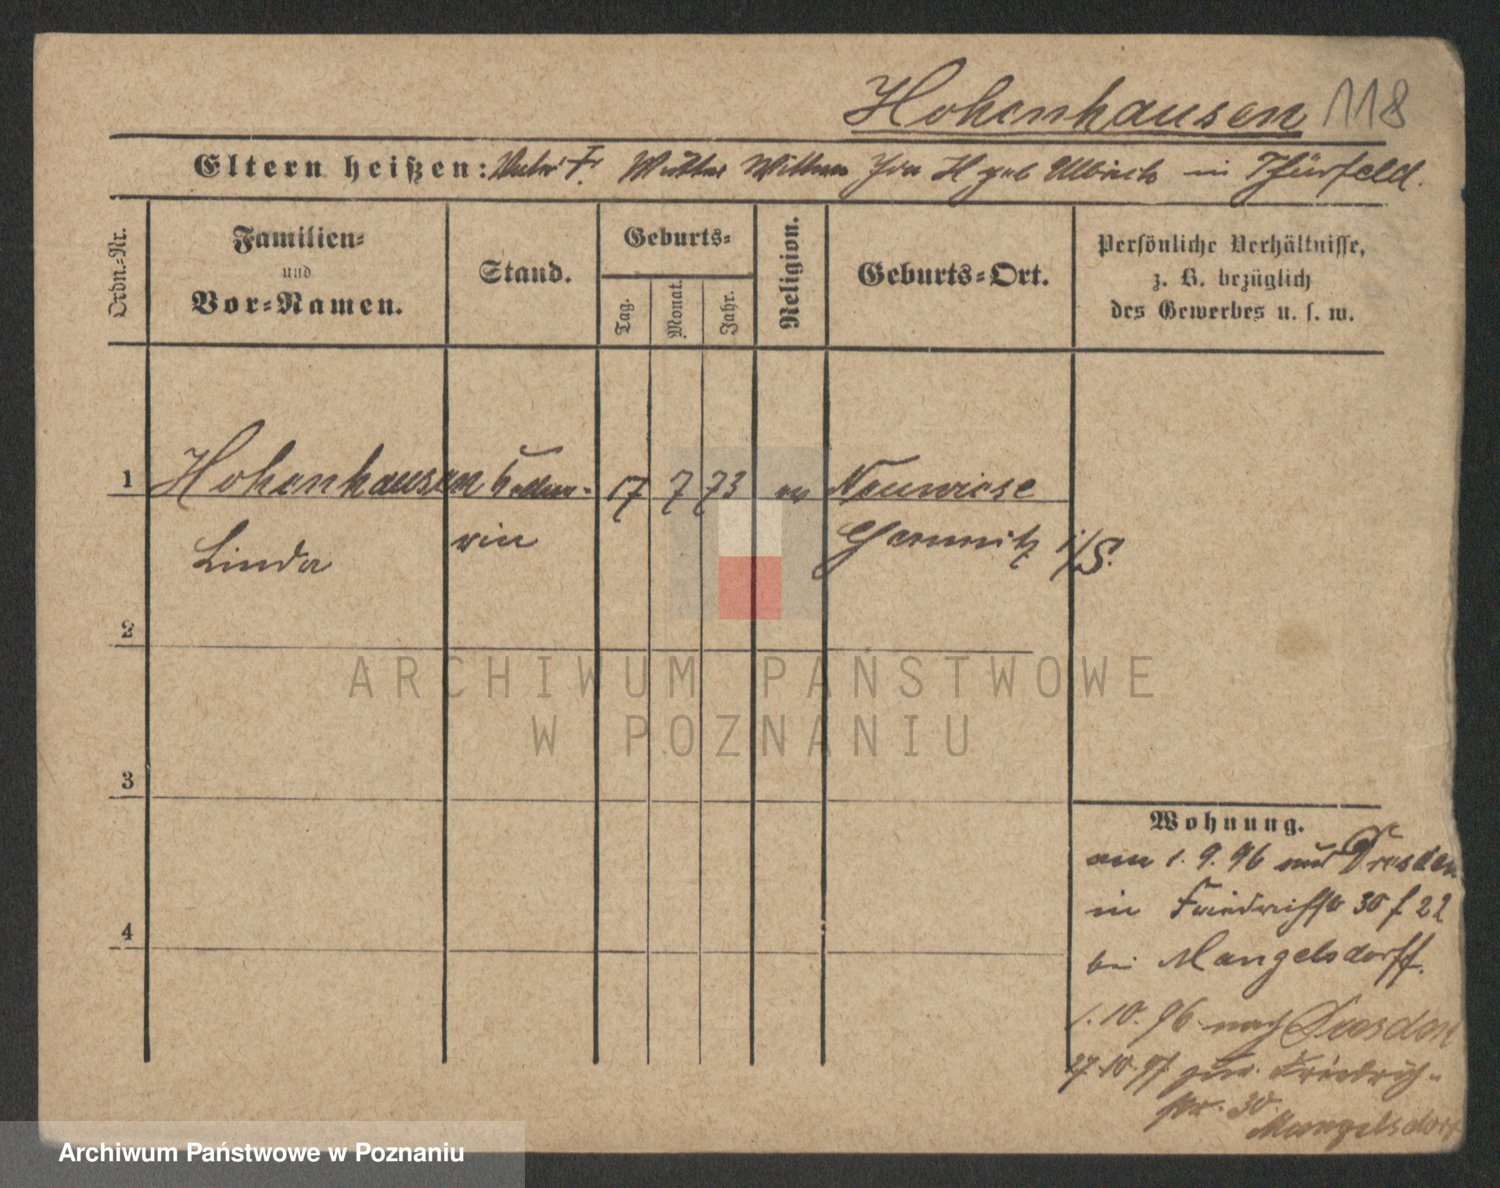 Hohenhausen 118
Eltern heißen: Vater Fr. Mutter Wittwe Ida H geb Ulbrich in Thürfeld.
Ordn.-Nr.
Familien-
und
Vor-Namen.
Stand.
Geburts-
Tag.
Monat.
Jahr.
Religion.
Geburts-Ort.
Persönliche Verhältnisse,
z. B. bezüglich
des Gewerbes u. s. w.
1 Hohenhausen 17 7 73 ev Neuwiese
Linda rin Chemnitz i/S.
2
3
4
Wohnung.
am 1. 9. 96 aus Dresden
in Friedrichstr 30 f 22
bei Mangelsdorff.
1. 10. 96 nach Dresden
17.10.97 zur. Friedrich-
str. 30
Mangelsdorf
ARCHIWUM PAŃSTWOWE
W POZNANIU
Archiwum Państwowe w Poznaniu